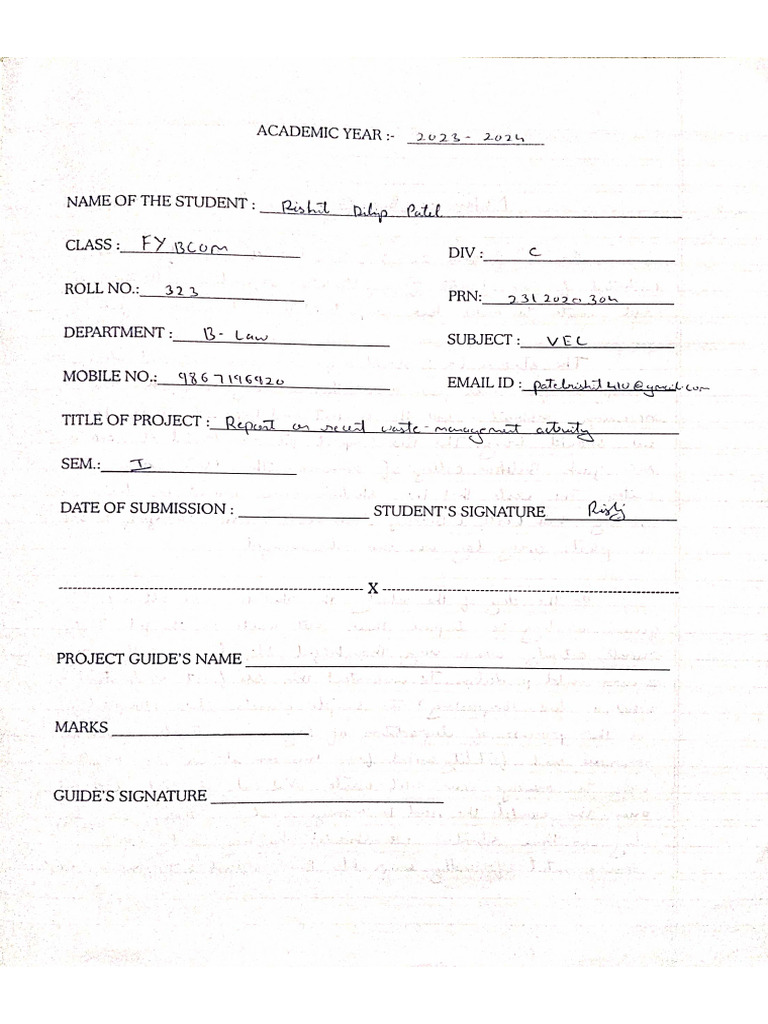 ACADEMIC YEAR :- 2023 - 2024
NAME OF THE STUDENT : Rishit Dilip Patel
CLASS : FY BCOM
DIV : C
ROLL NO.: 323
PRN: 2312020304
DEPARTMENT : B - Law
SUBJECT : VEC
MOBILE NO.: 9867196920
EMAIL ID : patelrishit410@gmail.com
TITLE OF PROJECT : Report on recent waste-management activity
SEM.: I
DATE OF SUBMISSION : STUDENT'S SIGNATURE
X
PROJECT GUIDE'S NAME
MARKS
GUIDE'S SIGNATURE